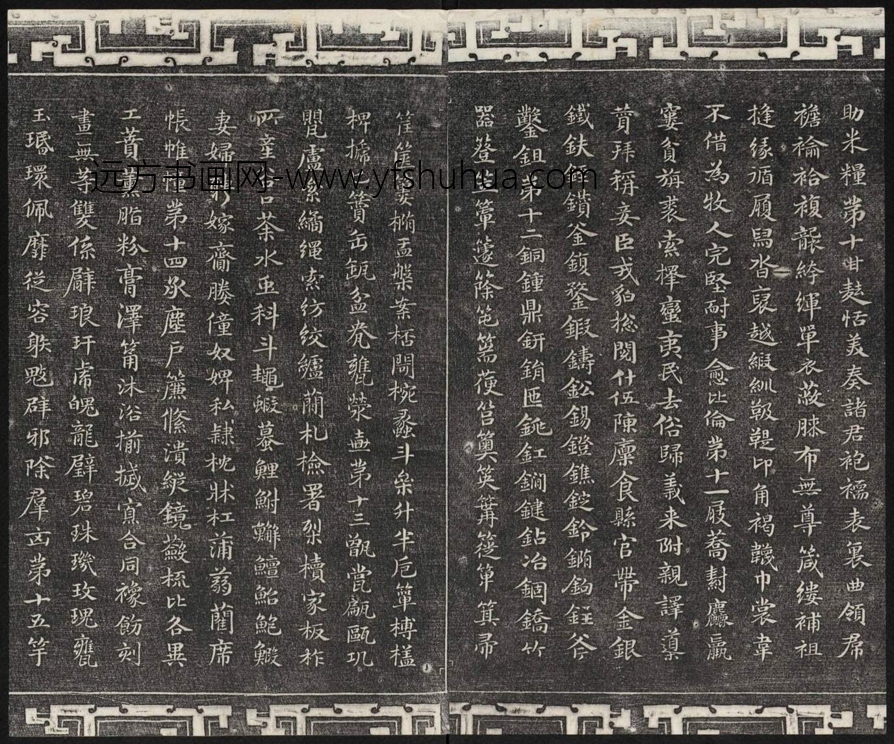 助米糧第十甘麩恬美奏諸君袍襦表裏曲領帬
襜褕袷複袴緷單衣蔽膝布無尊箴縷補袒
縫緣循履舄沓裒越緞紃靸鞮卬角褐韤巾裳韋
不借為牧人完堅耐事愈比倫第十一屐蕎麤羸
窶貧旃裘索擇蠻夷民去俗歸義来附親譯導
贊拜稱妾臣戎貊捴閱什伍陳廩食縣官帶金銀
鐵鈇鑽釜鍑鍪鍛鑄鈆錫鐙鐎錠鈴鉤銍斧
鑿鉏第十二銅鍾鼎鈃鋗匜銚釭鐧鍵鉆冶錮鐈竹
器簦笠簟籧篨篅筥箅篝箄箕帚
筐簍橢盂槃案桮閜椀蠡斗參升半卮簞榑榼
椑缶缻盆甕滎壺第十三甑瓽甂甌瓨
甖盧繘繩索紡絞纑簡札檢署槧牘家板柞
所產谷茶水虫科斗蝦蟇鯉鮒鱣鮐鮑鰕
妻婦聘嫁齎媵僮奴婢私隸枕牀杠蒲蒻藺席
帳帷幢第十四承塵戶簾絛潰緵鏡梳比各異
工蕡薰脂粉膏澤筩沐浴揃搣寡合同襐飾刻
畫無等雙係臂琅玕虎魄龍璧碧珠璣玫瑰甕
玉環佩靡從容魃辟邪除羣凶第十五竽
远方书画网-www.yfshuhua.com